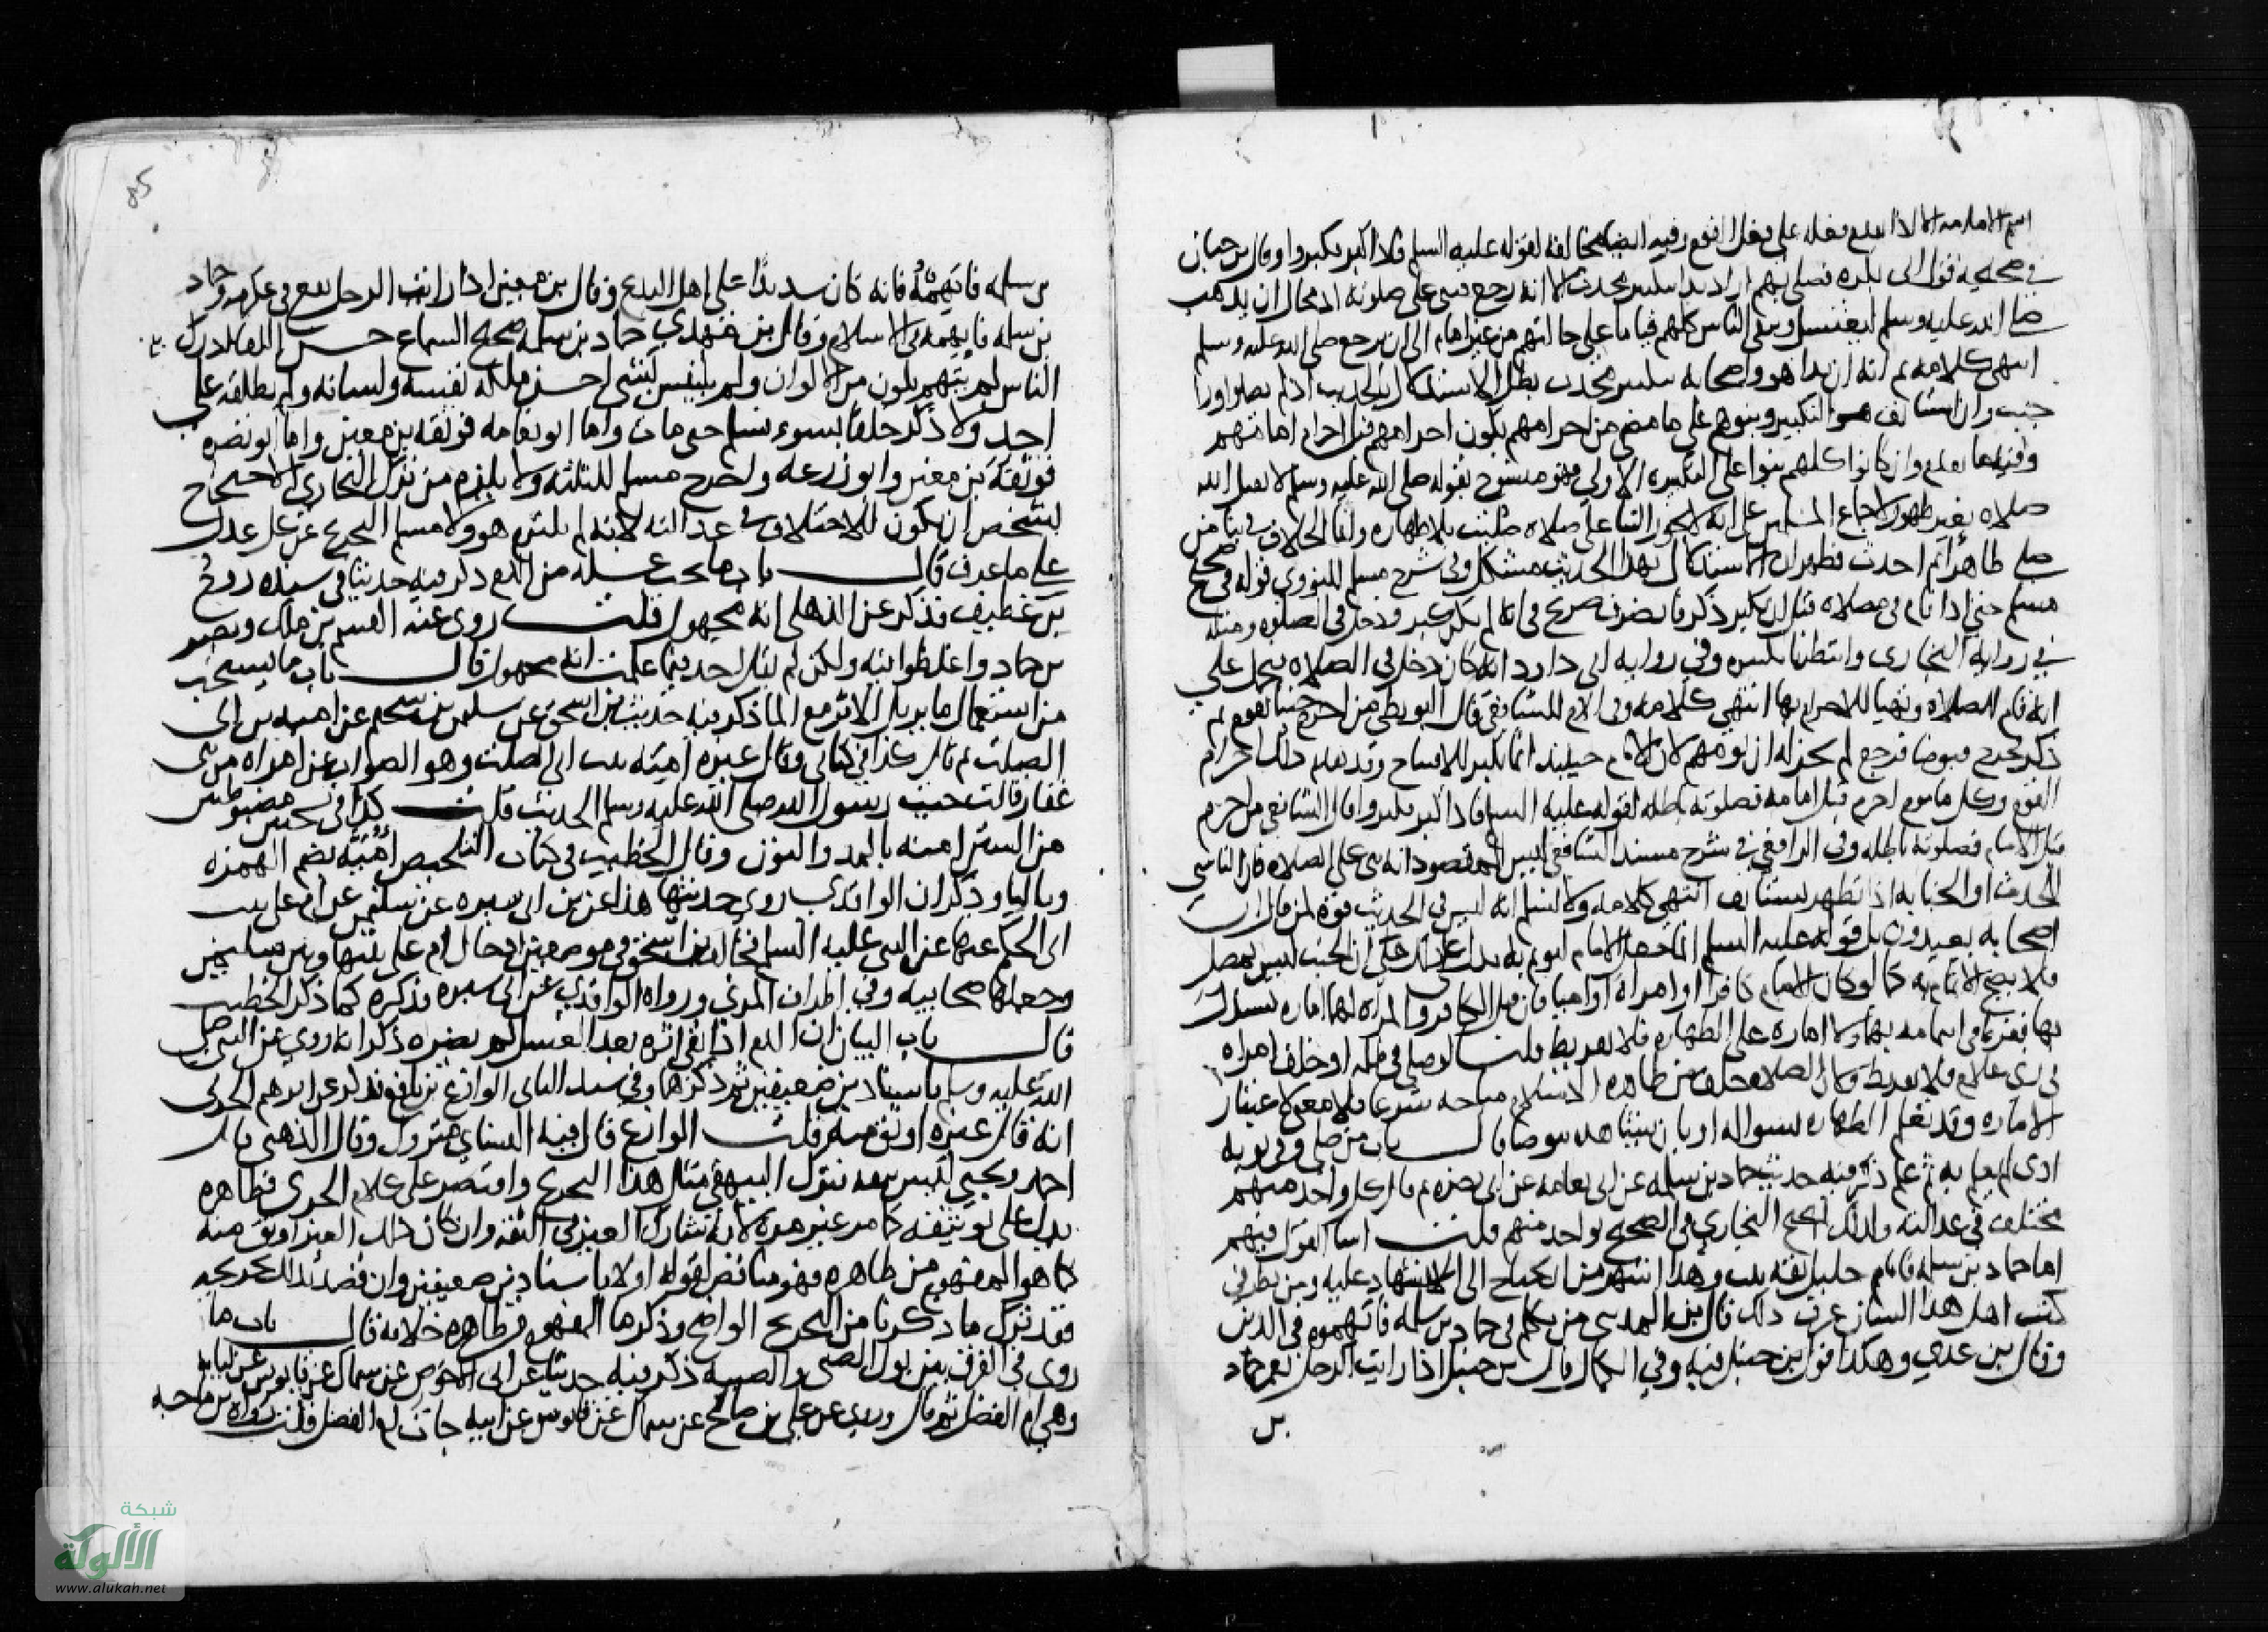 في صحيحه قوله الى بلده فصلى بهم اراد بدا بتكبير محدث لا انه رجع فبنى على صلوته اذ محال ان يذهب
صلى الله عليه وسلم ليغتسل ويبقى الناس كلهم قياما على حالتهم من غير امام الى ان يرجع صلى الله عليه وسلم
انتهى كلامه ثم انه ان بدا هو واصحابه بتكبير محدث بطل الاستدلال بالحديث
التكبير وبنوهم على ما مضى من احرامهم يكون احرامهم قبل احرام امامهم
وفيه ما تقدم وان كانوا كلهم بنوا على التكبيرة الاولى فهو منسوخ بقوله صلى الله عليه وسلم لا يقبل الله
صلاة بغير طهور ولاجماع المسلمين على انه لا يجوز البنا على صلاة صليت بلا طهارة وانما الخلاف في بنا من
صلى طاهرا ثم احدث فظهر ان الاستدلال بهذا الحديث مشكل وفي شرح مسلم للنووي قوله في صحيح
مسلم حتى اذا قام في مصلاه قبل ان يكبر ذكر فانصرف صريح في انه لم يكن كبر ودخل في الصلوة ومثله
في رواية البخاري وانتظرنا تكبيره وفي رواية ابي داود انه كان دخل في الصلاة يحمل على
انه قام للصلاة وتهيا للاحرام بها انتهى كلامه وفي الام للشافعي قال البويطي من احرم جنبا بقوم ثم
ذكر فخرج فتوضا فرجع لم يجز له ان يومهم لان الامام حينئذ انما تكبير للافتتاح وقد تقدم ذلك احرام
القوم وكل ماموم احرم قبل امامه فصلوته باطلة لقوله عليه السلم فاذا كبر فكبروا وقال الشافعي من احرم
قبل الامام فصلوته باطلة وفي الرافعي في شرح مسند الشافعي ليس المقصود انه بنى على الصلاة فان الناسي
للحدث او الجنابة اذا تطهر يستانف انتهى كلامه ولا نسلم انه ليس في الحديث قوة لمن قال ان
اصحابه يعيدون بل قوله عليه السلم انما جعل الامام ليوتم به يدل على
فلا يصح الائتمام به كما لو كان الامام كافرا او امراة او اميا فان قيل الكافر والمراة لهما امارة يستدل
بها فتفريط في ائتمامه بهما ولا امارة على الطهارة فلا تفريط قلت لو صلى في ظلمة او خلف امراة
في زي غلام فلا تفريط وكان الصلاة خلف من ظاهره الاسلام مباحة شرعا فلا معنى لاعتبار
الامارة وقد تعلم الطهارة بسواله او بان يشاهده يتوضا قال باب من صلى وفي ثوبه
اذى لم يعلم به ثم علم ذكر فيه حديث حماد بن سلمة عن ابي نعامة عن ابي نضرة ثم قال كل واحد منهم
مختلف في عدالته ولذلك لم يحتج البخاري في الصحيح بواحد منهم قلت اسا القول فيهم
اما حماد بن سلمة فامام جليل ثقة ثبت وهذا اشتهر من ان يحتاج الى الاستشهاد عليه ومن نظر في
كتب اهل هذا الشان عرف ذلك قال بن المديني من تكلم في حماد بن سلمة فاتهموه في الدين
وقال بن عدي وهكذا قول بن حنبل فيه وفي الكمال قال بن حنبل اذا رايت الرجل يغمز حماد
بن
85
بن سلمة فاتهمه فانه كان شديدا على اهل البدع وقال بن معين اذا رايت الرجل يقع في عكرمة وحماد
بن سلمة فاتهمه في الاسلام وقال بن مهدي حماد بن سلمة صحيح السماع حسن اللقا ادرك
الناس لم يتهم بلون من الالوان ولم يلتبس بشي احسن ملكة نفسه ولسانه ولم يطلقه على
احد ولا ذكر خلقا بسوء فسلم حتى مات واما ابو نعامة فوثقه بن معين واما ابو نضرة
فوثقه بن معين وابو زرعة واخرج مسلم للثلثة ولا يلزم من ترك البخاري الاحتجاج
بشخص ان يكون للاختلاف في عدالته لانه لم يلتزم هو ولا مسلم التخريج عن كل عدل
على ما عرف قال باب ما يجب غسله من الدم ذكر فيه حديثا في سنده روح
بن غطيف فذكر عن الذهلي انه مجهول قلت روى عنه القسم بن ملك ونصر
بن حماد واغلظوا فيه ولكن لم يقل احد فيما علمت انه مجهول قال باب ما يستحب
من استعمال ما يزيل الاثر مع الما ذكر فيه حديث بن اسحق عن سليمن بن سحيم عن امية بن ابي
الصلت ثم قال كذا في كتابي وقال غيره امية بنت ابي الصلت وهو الصواب عن امراة من بني
غفار قالت جيت رسول الله صلى الله عليه وسلم الحديث قلت كذا في نسختين مضبوطتين
من السنن امنة بالمد والنون وقال الخطيب في كتاب التلخيص اُمَيّة بضم الهمزة
وباليا وذكر ان الواقدي روى حديثها هذا عن بن ابي سبرة عن سليمن عن ام علي بنت
ابي الحكم عنها عن النبي عليه السلم فخالف بن اسحق في موضعين ادخال ام علي بينها وبين سليمن
وجعلها صحابية وفي اطراف المزي ورواه الواقدي عن ابي سبرة فذكره كما ذكر الخطيب
قال باب البيان ان الدم اذا بقي اثره بعد الغسل لم يضره ذكر انه روي عن النبي صلى
الله عليه وسلم باسنادين ضعيفين ثم ذكرهما وفي سند الثاني الوازع بن نافع فذكر عن ابرهيم الحربي
انه قال غيره اوثق منه قلت الوازع قال فيه النساي متروك وقال الذهبي قال
احمد ويحيى ليس بثقة فترك البيهقي مثل هذا التجريح واقتصر على كلام الحربي فظاهره
يدل على توثيقه كما مر غير مرة لانه شارك الغير في الثقة وان كان ذلك الغير اوثق منه
كما هو المفهوم من ظاهره فهو مناقض لقوله اولا باسنادين ضعيفين وان قصد بذلك تجريحه
فقد ترك ما ذكرنا من التجريح الواضح وذكر ما المفهوم من ظاهره خلافه قال باب ما
روي في الفرق بين بول الصبي والصبية ذكر فيه حديثا عن ابي الاحوص عن سماك عن قابوس عن لبابة
وهي ام الفضل ثم قال وروي عن علي بن صالح عن سماك عن قابوس عن ابيه جات ام الفضل قلت رواه بن ماجه
شبكة
الألوكة
www.alukah.net